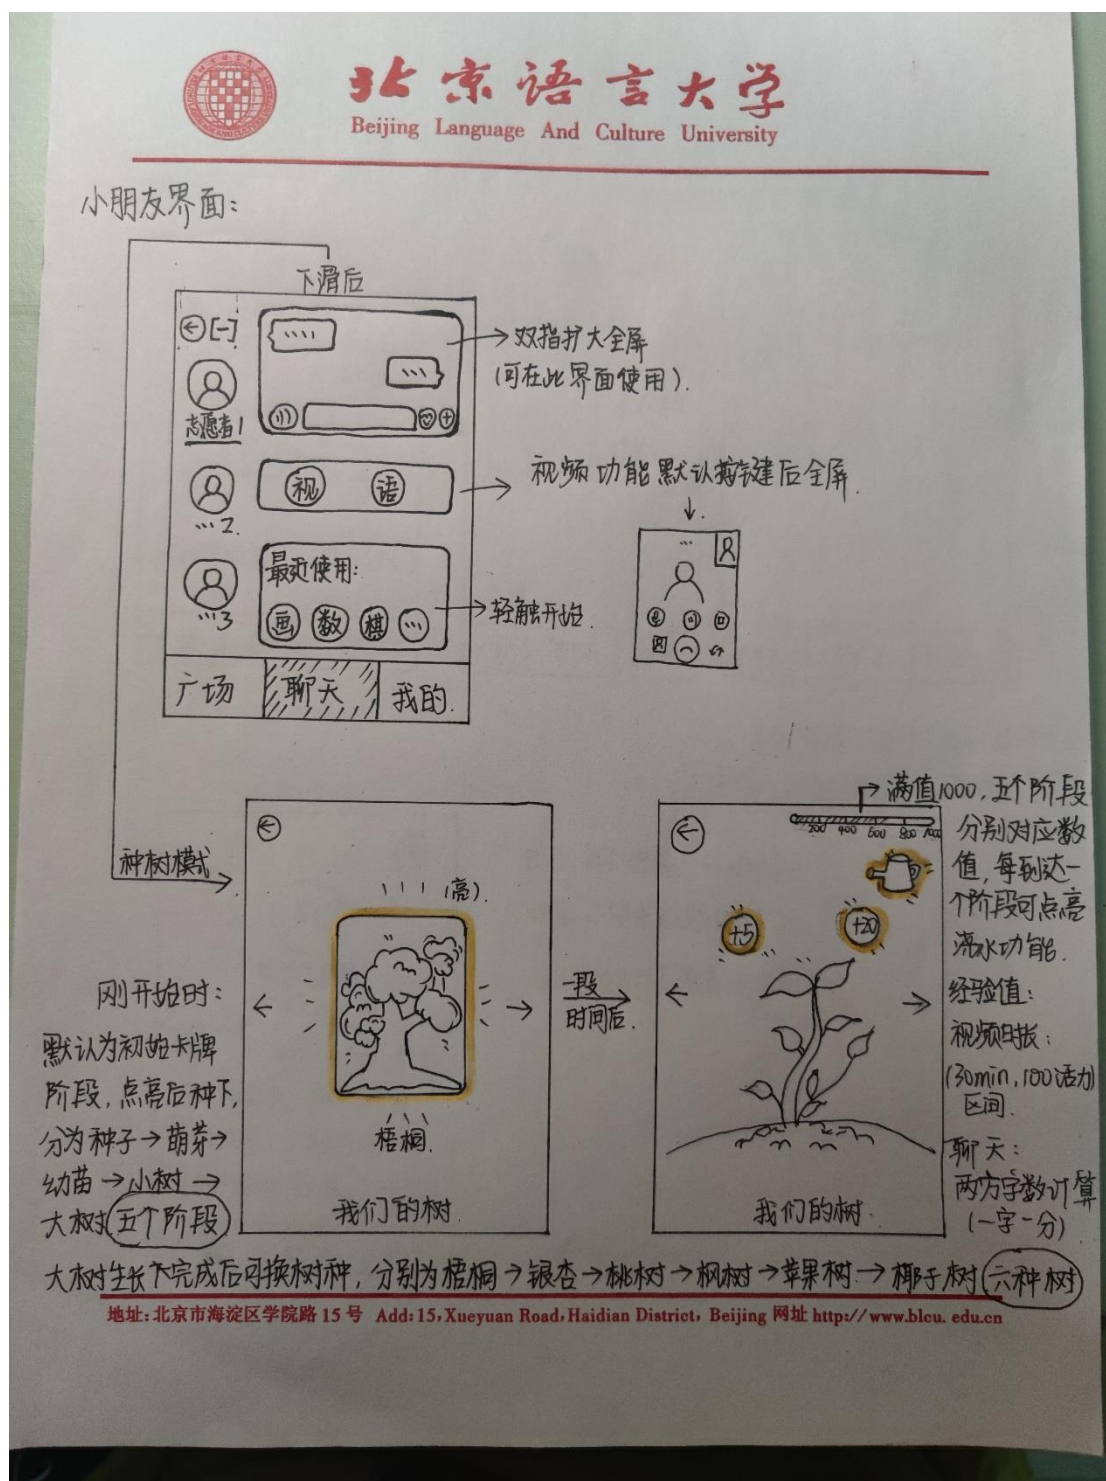 北京语言大学
Beijing Language And Culture University
小朋友界面:
下滑后
志愿者1
...2.
...3
视 语
最近使用:
画 数 棋 ...
广场 聊天 我的.
→双指扩大全屏
(可在此界面使用).
视频功能默认按键后全屏.
→轻触开始.
种树模式
(亮).
梧桐.
我们的树.
刚开始时:
默认为初始卡牌
阶段,点亮后种下,
分为种子→萌芽→
幼苗→小树→
大树五个阶段
一段
时间后.
200 400 600 800 1000
+5
+20
我们的树.
→满值1000,五个阶段
分别对应数
值,每到达一
个阶段可点亮
浇水功能.
经验值:
视频时长:
(30min,100活力)
区间.
聊天:
两方字数计算
(一字一分)
大树生长完成后可换树种,分别为梧桐→银杏→桃树→枫树→苹果树→椰子树 六种树
地址:北京市海淀区学院路 15 号 Add:15,Xueyuan Road,Haidian District, Beijing 网址 http://www.blcu. edu.cn